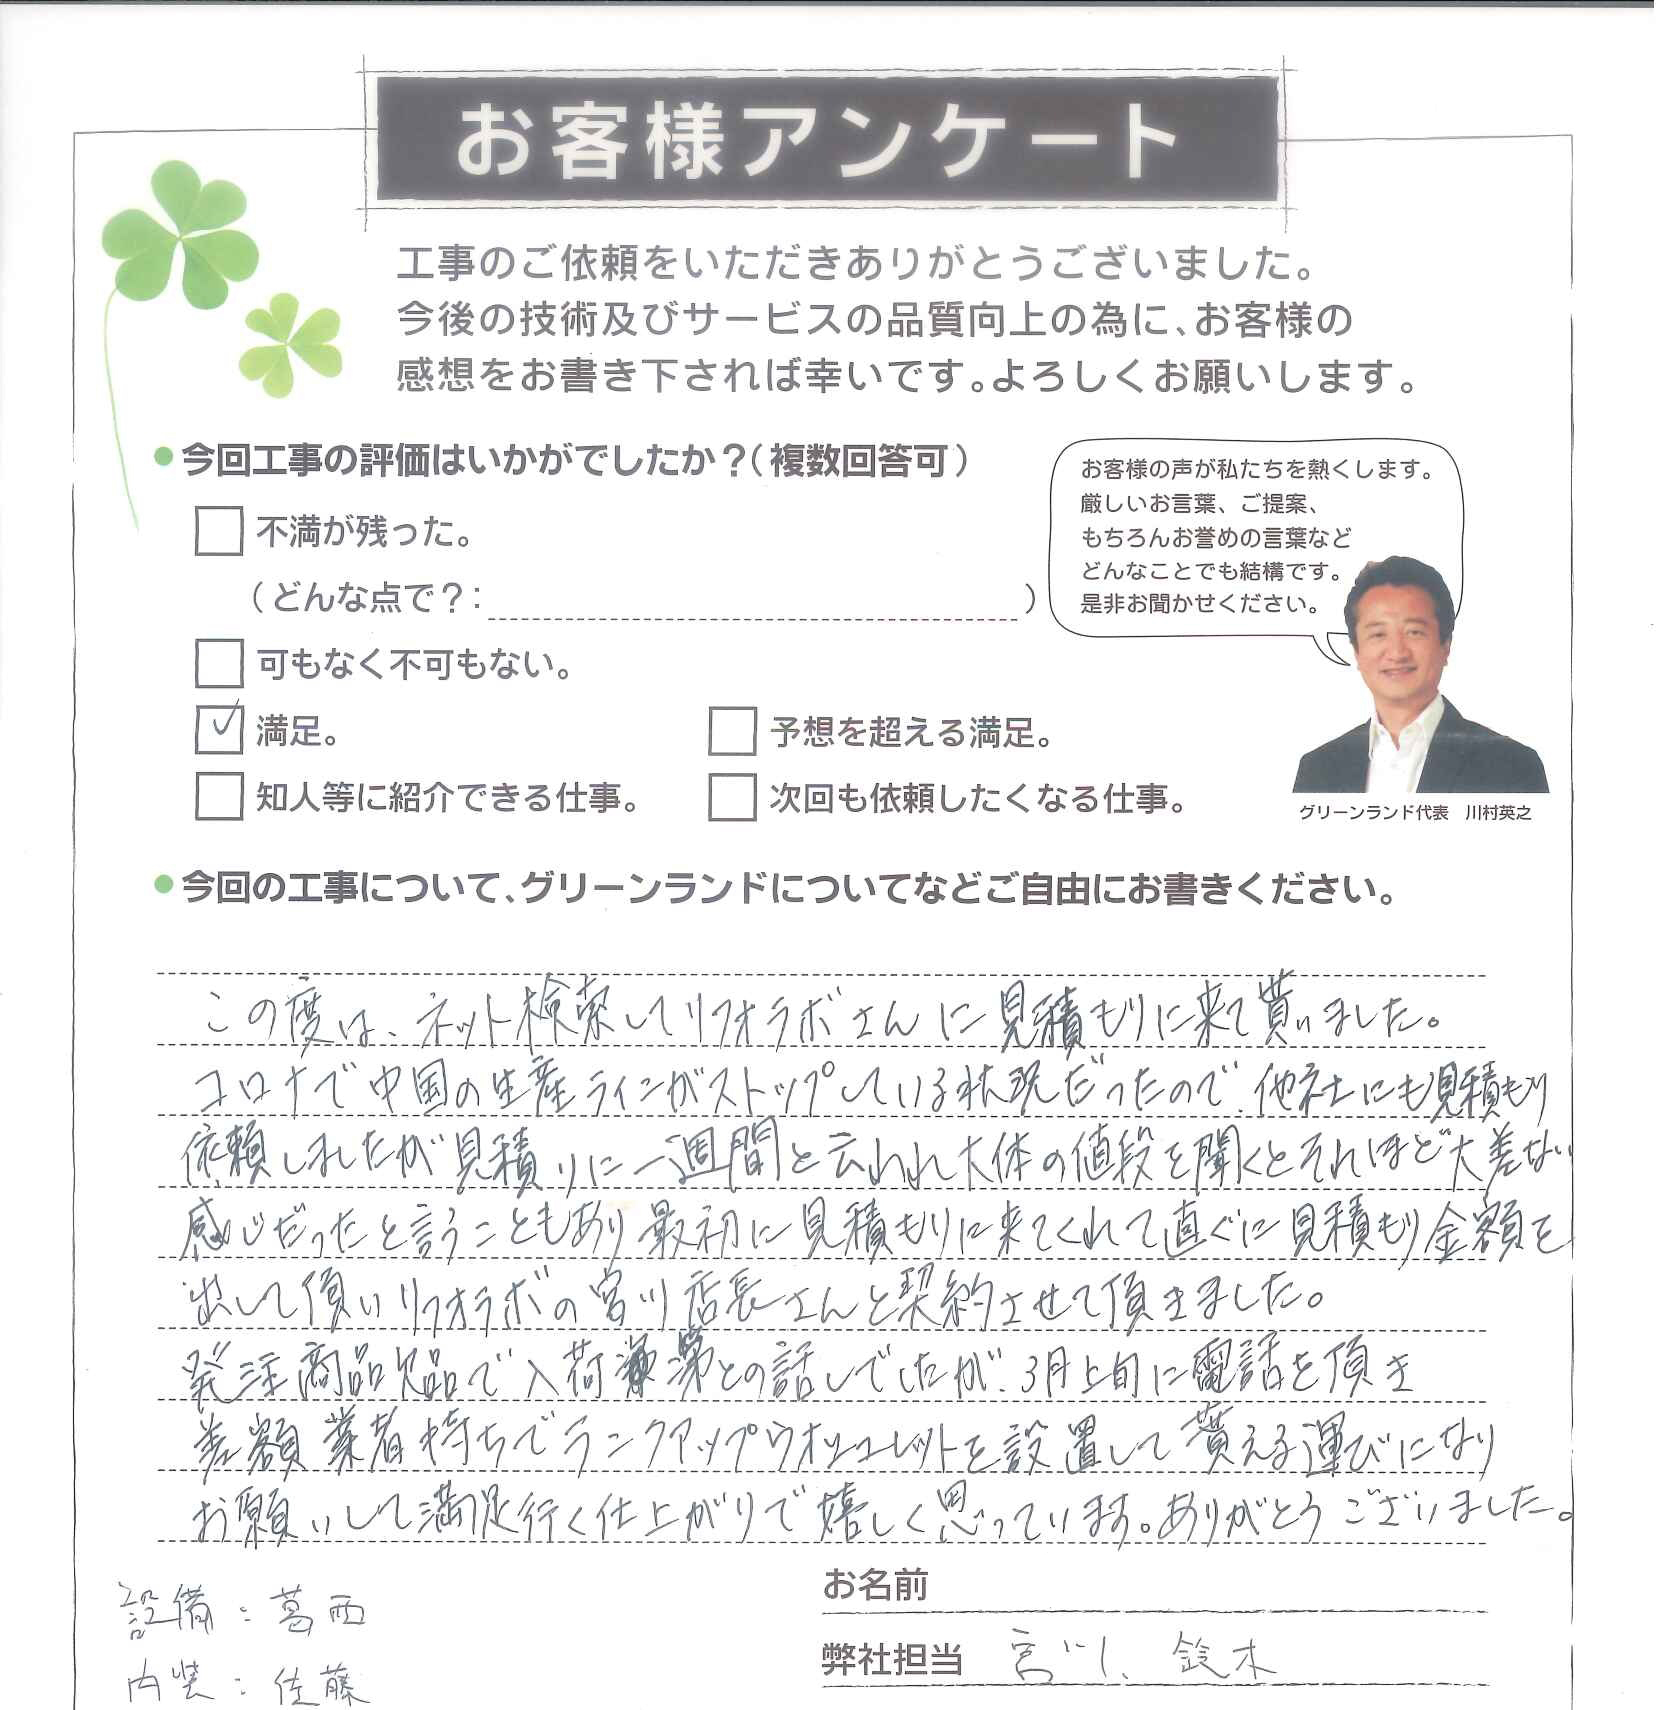 お客様アンケート
工事のご依頼をいただきありがとうございました。
今後の技術及びサービスの品質向上の為に、お客様の
感想をお書き下されば幸いです。よろしくお願いします。
●今回工事の評価はいかがでしたか？（複数回答可）
□不満が残った。
（どんな点で？：　　　　）
□可もなく不可もない。
☑満足。
□予想を超える満足。
□知人等に紹介できる仕事。
□次回も依頼したくなる仕事。
お客様の声が私たちを熱くします。
厳しいお言葉、ご提案、
もちろんお誉めの言葉など
どんなことでも結構です。
是非お聞かせください。
グリーンランド代表　川村英之
●今回の工事について、グリーンランドについてなどご自由にお書きください。
この度は、ネット検索してリフォラボさんに見積もりに来て貰いました。
コロナで中国の生産ラインがストップしている状況だったので、他社にも見積もり
依頼しましたが見積りに一週間と云われ大体の値段を聞くとそれほど大差ない
感じだったと言うこともあり最初に見積もりに来てくれて直ぐに見積もり金額を
出して頂いリフォラボの宮川店長さんと契約させて頂きました。
発注商品欠品で入荷未定との話しでしたが、3月上旬に電話を頂き
差額業者持ちでランクアップウオシュレットを設置して貰える運びになり
お願いして満足行く仕上がりで嬉しく思っています。ありがとうございました。
設備：葛西
内装：佐藤
お名前
弊社担当　宮川、鈴木